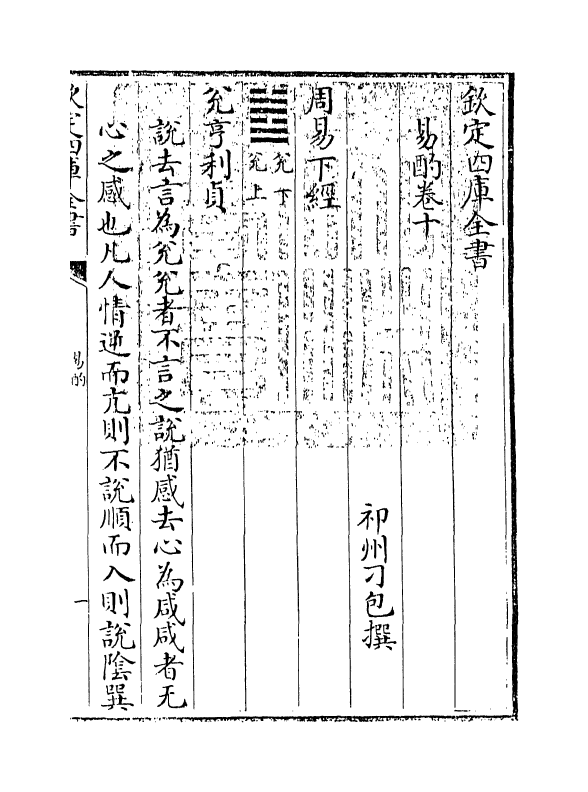 欽定四庫全書
易酌卷十
祁州刁包撰
周易下經
兌下
兌上
兌亨利貞
說去言為兌兌者不言之說猶感去心為咸咸者无
心之感也凡人情逆而亢則不說順而入則說陰巽
欽定四庫全書
易酌
一